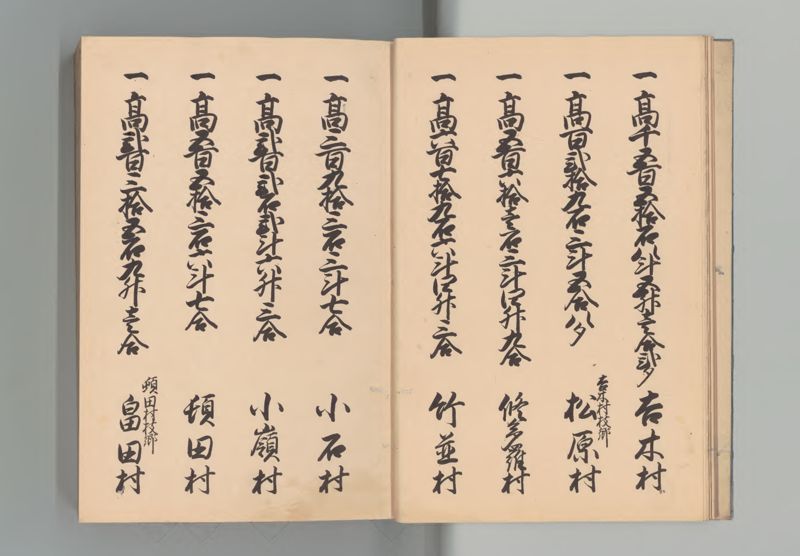 一 髙千五百五拾石八斗五升壱合弐夕 吉木村
一 髙百弐拾九石三斗五合八夕 吉木村枝郷 松原村
一 髙五百六拾壱石三斗四升九合 修多羅村
一 髙六百七拾九石六斗四升三合 竹並村
一 髙三百九拾三石三斗七合 小石村
一 髙弐百弐石弐斗六升三合 小嶺村
一 髙五百五拾三石六斗七合 頓田村
一 髙弐百三拾五石九升壱合 頓田村枝郷 畠田村